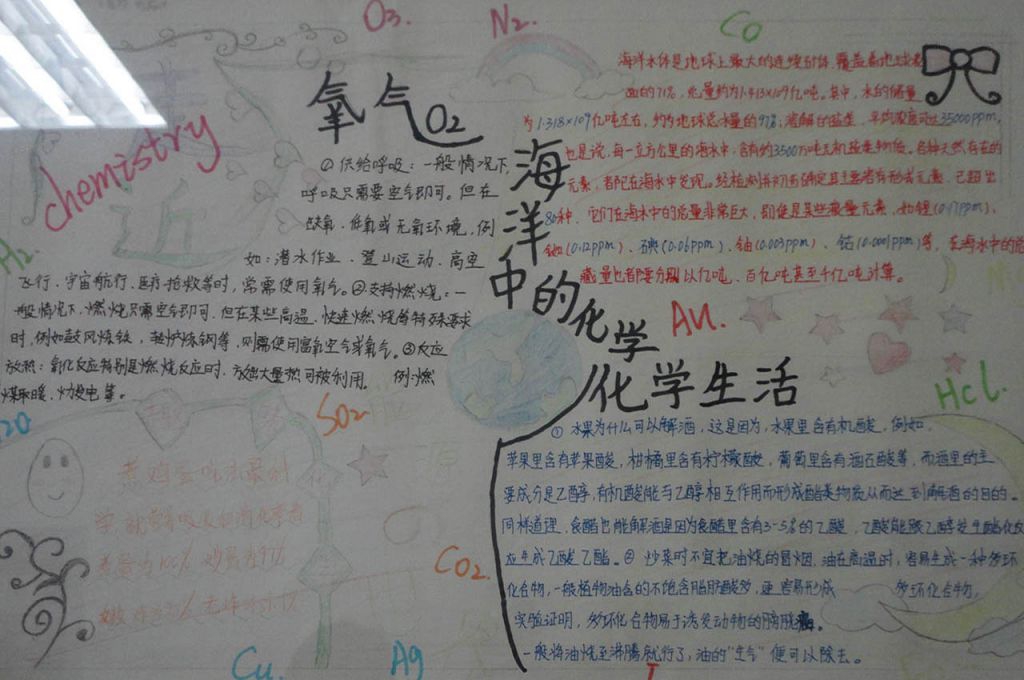 O3.
N2.
CO
chemistry
氧气O2
①供给呼吸:一般情况下,
呼吸只需要空气即可。但在
缺氧、低氧或无氧环境,例
如:潜水作业、登山运动、高空
飞行、宇宙航行、医疗抢救等时,常需使用氧气。②支持燃烧:一
般情况下,燃烧只需空气即可,但在某些高温、快速燃烧等特殊要求
时,例如鼓风炼铁、转炉炼钢等,则需使用富氧空气或氧气。③反应
放热:氧化反应特别是燃烧反应时,放出大量热可被利用。 例:燃
煤取暖、火力发电等。
海洋中的化学
海洋水体是地球上最大的连续矿体,覆盖着地球表
面的71%,总量约为1.413×109亿吨。其中,水的储量
为1.318×109亿吨左右,约为地球总水量的97%;溶解的盐类,平均浓度可达35000ppm,
也是说,每一立方公里的海水中,含有约3500万吨无机盐类物质。各种天然存在的
元素,都已在海水中发现。经检测并初步确定其主要存在形式元素,已超出
80种,它们在海水中的总量非常巨大,即使是某些微量元素,如锂(0.17ppm)、
铷(0.12ppm)、碘(0.06ppm)、铀(0.003ppm)、钴(0.0001ppm)等,在海水中的总
藏量也都要分别以亿吨、百亿吨甚至千亿吨计算。
H2.
Au.
SO2
CO2.
Cu.
Ag
HCl.
煮鸡蛋吃法最别
化学生活
① 水果为什么可以解酒,这是因为,水果里含有机酸,例如,
苹果里含有苹果酸,柑橘里含有柠檬酸,葡萄里含有酒石酸等,而酒里的主
要成分是乙醇,有机酸能与乙醇相互作用而形成酯类物质从而达到解酒的目的。
同样道理,食醋也能解酒是因为食醋里含有3-5%的乙酸,乙酸能跟乙醇发生酯化反
应生成乙酸乙酯。② 炒菜时不宜把油烧的冒烟,油在高温时,容易生成一种多环
化合物,一般植物油含的不饱合脂肪酸多,更容易形成 多环化合物,
实验证明,多环化合物易于诱发动物的膀胱癌。
一般将油烧至沸腾就行了,油的“生气”便可以除去。